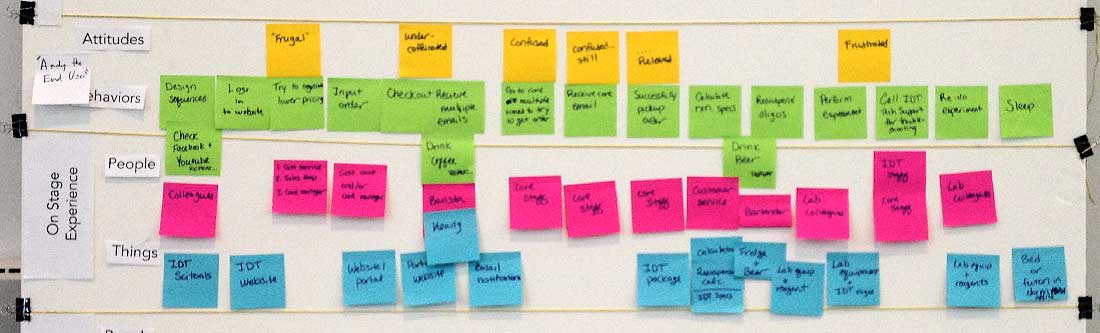 Attitudes
"Frugal"
under-
caffeinated
Confused
confused...
still
....
Relieved
Frustrated
"Andy the
End User"
ehaviors
Design
sequences
Logs
in
to website
Try to
lower pricing
Input
order
Checkout
Receive
multiple
emails
Go to core
multiple
times to try
to get order
Receive core
email
Successfully
pickup
order
Calculate
rxn specs
Resuspend
oligos
Perform
experiment
Call IDT
Tech Support
for trouble-
shooting
Re-do
experiment
Sleep
Check
Facebook +
Youtube
Drink
Coffee
Drink
Beer
On Stage
Experience
People
Colleagues
1. Cust service
2. Sales Rep
3. Core manager
Cust care
and/or
core manager
Barista
Core
Staff
Core
Staff
Core
Staff
Customer
service
Bartender
Lab
Colleagues
IDT
Staff
Core
Staff
Lab
Colleagues
Things
IDT
Scitools
IDT
Website
Website/
portal
website
Email
notifications
IDT
package
Calculator
Resuspension
calc.
IDT Specs
Fridge
+
Beer
Lab equip
+
reagent
Lab
equipment
+
IDT
Lab equip
+
reagents
Bed
or
futon in